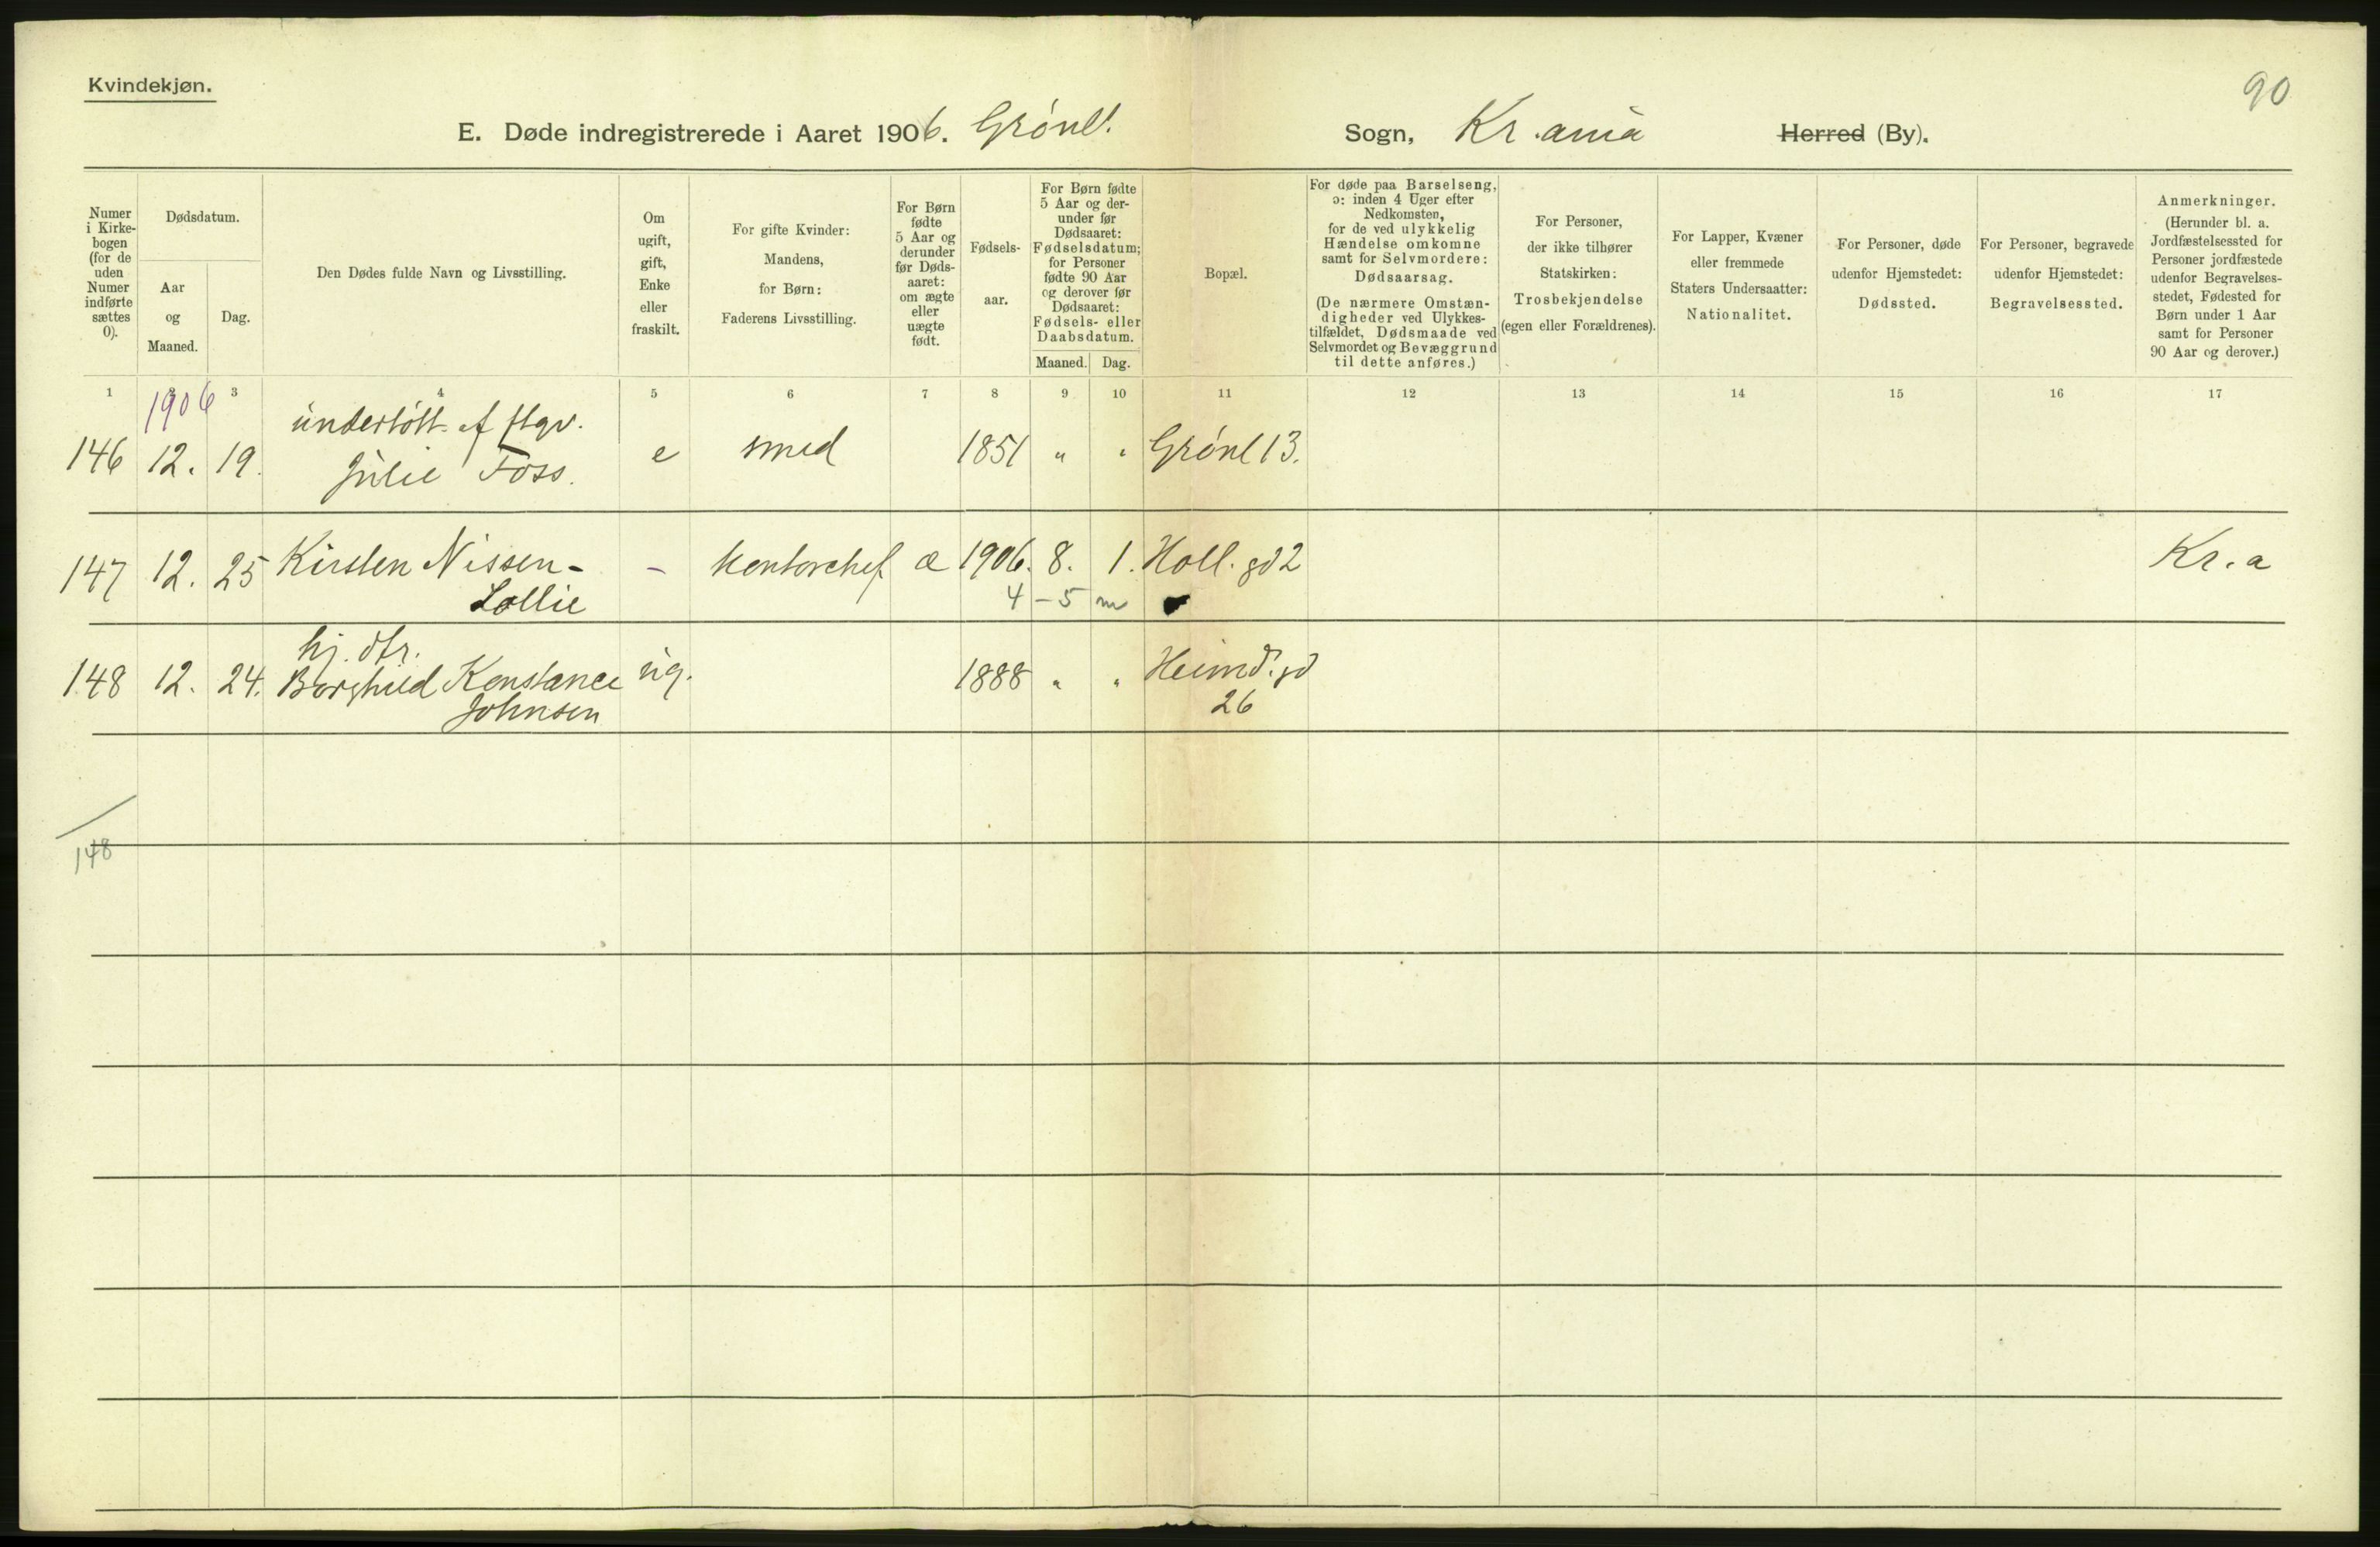 Kvindekjøn.
90
E. Døde indregistrerede i Aaret 1906. Grønl. Sogn, Kr.ania Herred (By).
Numer i Kirkebogen (for de uden Numer indførte sættes 0).
Dødsdatum.
Aar og Maaned.
Dag.
Den Dødes fulde Navn og Livsstilling.
Om ugift, gift, Enke eller fraskilt.
For gifte Kvinder: Mandens, for Børn: Faderens Livsstilling.
For Børn fødte 5 Aar og derunder før Dødsaaret: om ægte eller uægte født.
Fødselsaar.
For Børn fødte 5 Aar og derunder før Dødsaaret: Fødselsdatum; for Personer fødte 90 Aar og derover før Dødsaaret: Fødsels- eller Daabsdatum.
Maaned. Dag.
Bopæl.
For døde paa Barselseng, ɔ: inden 4 Uger efter Nedkomsten, for de ved ulykkelig Hændelse omkomne samt for Selvmordere: Dødsaarsag.
(De nærmere Omstændigheder ved Ulykkestilfældet, Dødsmaade ved Selvmordet og Bevæggrund til dette anføres.)
For Personer, der ikke tilhører Statskirken: Trosbekjendelse (egen eller Forældrenes).
For Lapper, Kvæner eller fremmede Staters Undersaatter: Nationalitet.
For Personer, døde udenfor Hjemstedet: Dødssted.
For Personer, begravede udenfor Hjemstedet: Begravelsessted.
Anmerkninger.
(Herunder bl. a. Jordfæstelsessted for Personer jordfæstede udenfor Begravelsesstedet, Fødested for Børn under 1 Aar samt for Personer 90 Aar og derover.)
1 2 3 4 5 6 7 8 9 10 11 12 13 14 15 16 17
1906
understøtt. af ftgv.
146 12. 19. Julie Foss. e smed 1851 " " Grønl 13.
147 12. 25 Kirsten Nissen- - kontorchef æ 1906. 8. 1. Holl. gd 2 Kr.a
Lollie 4 - 5 m
hj. dtr.
148 12. 24. Borghild Konstance ug. 1888 " " Heimd. gd
Johnsen 26
148